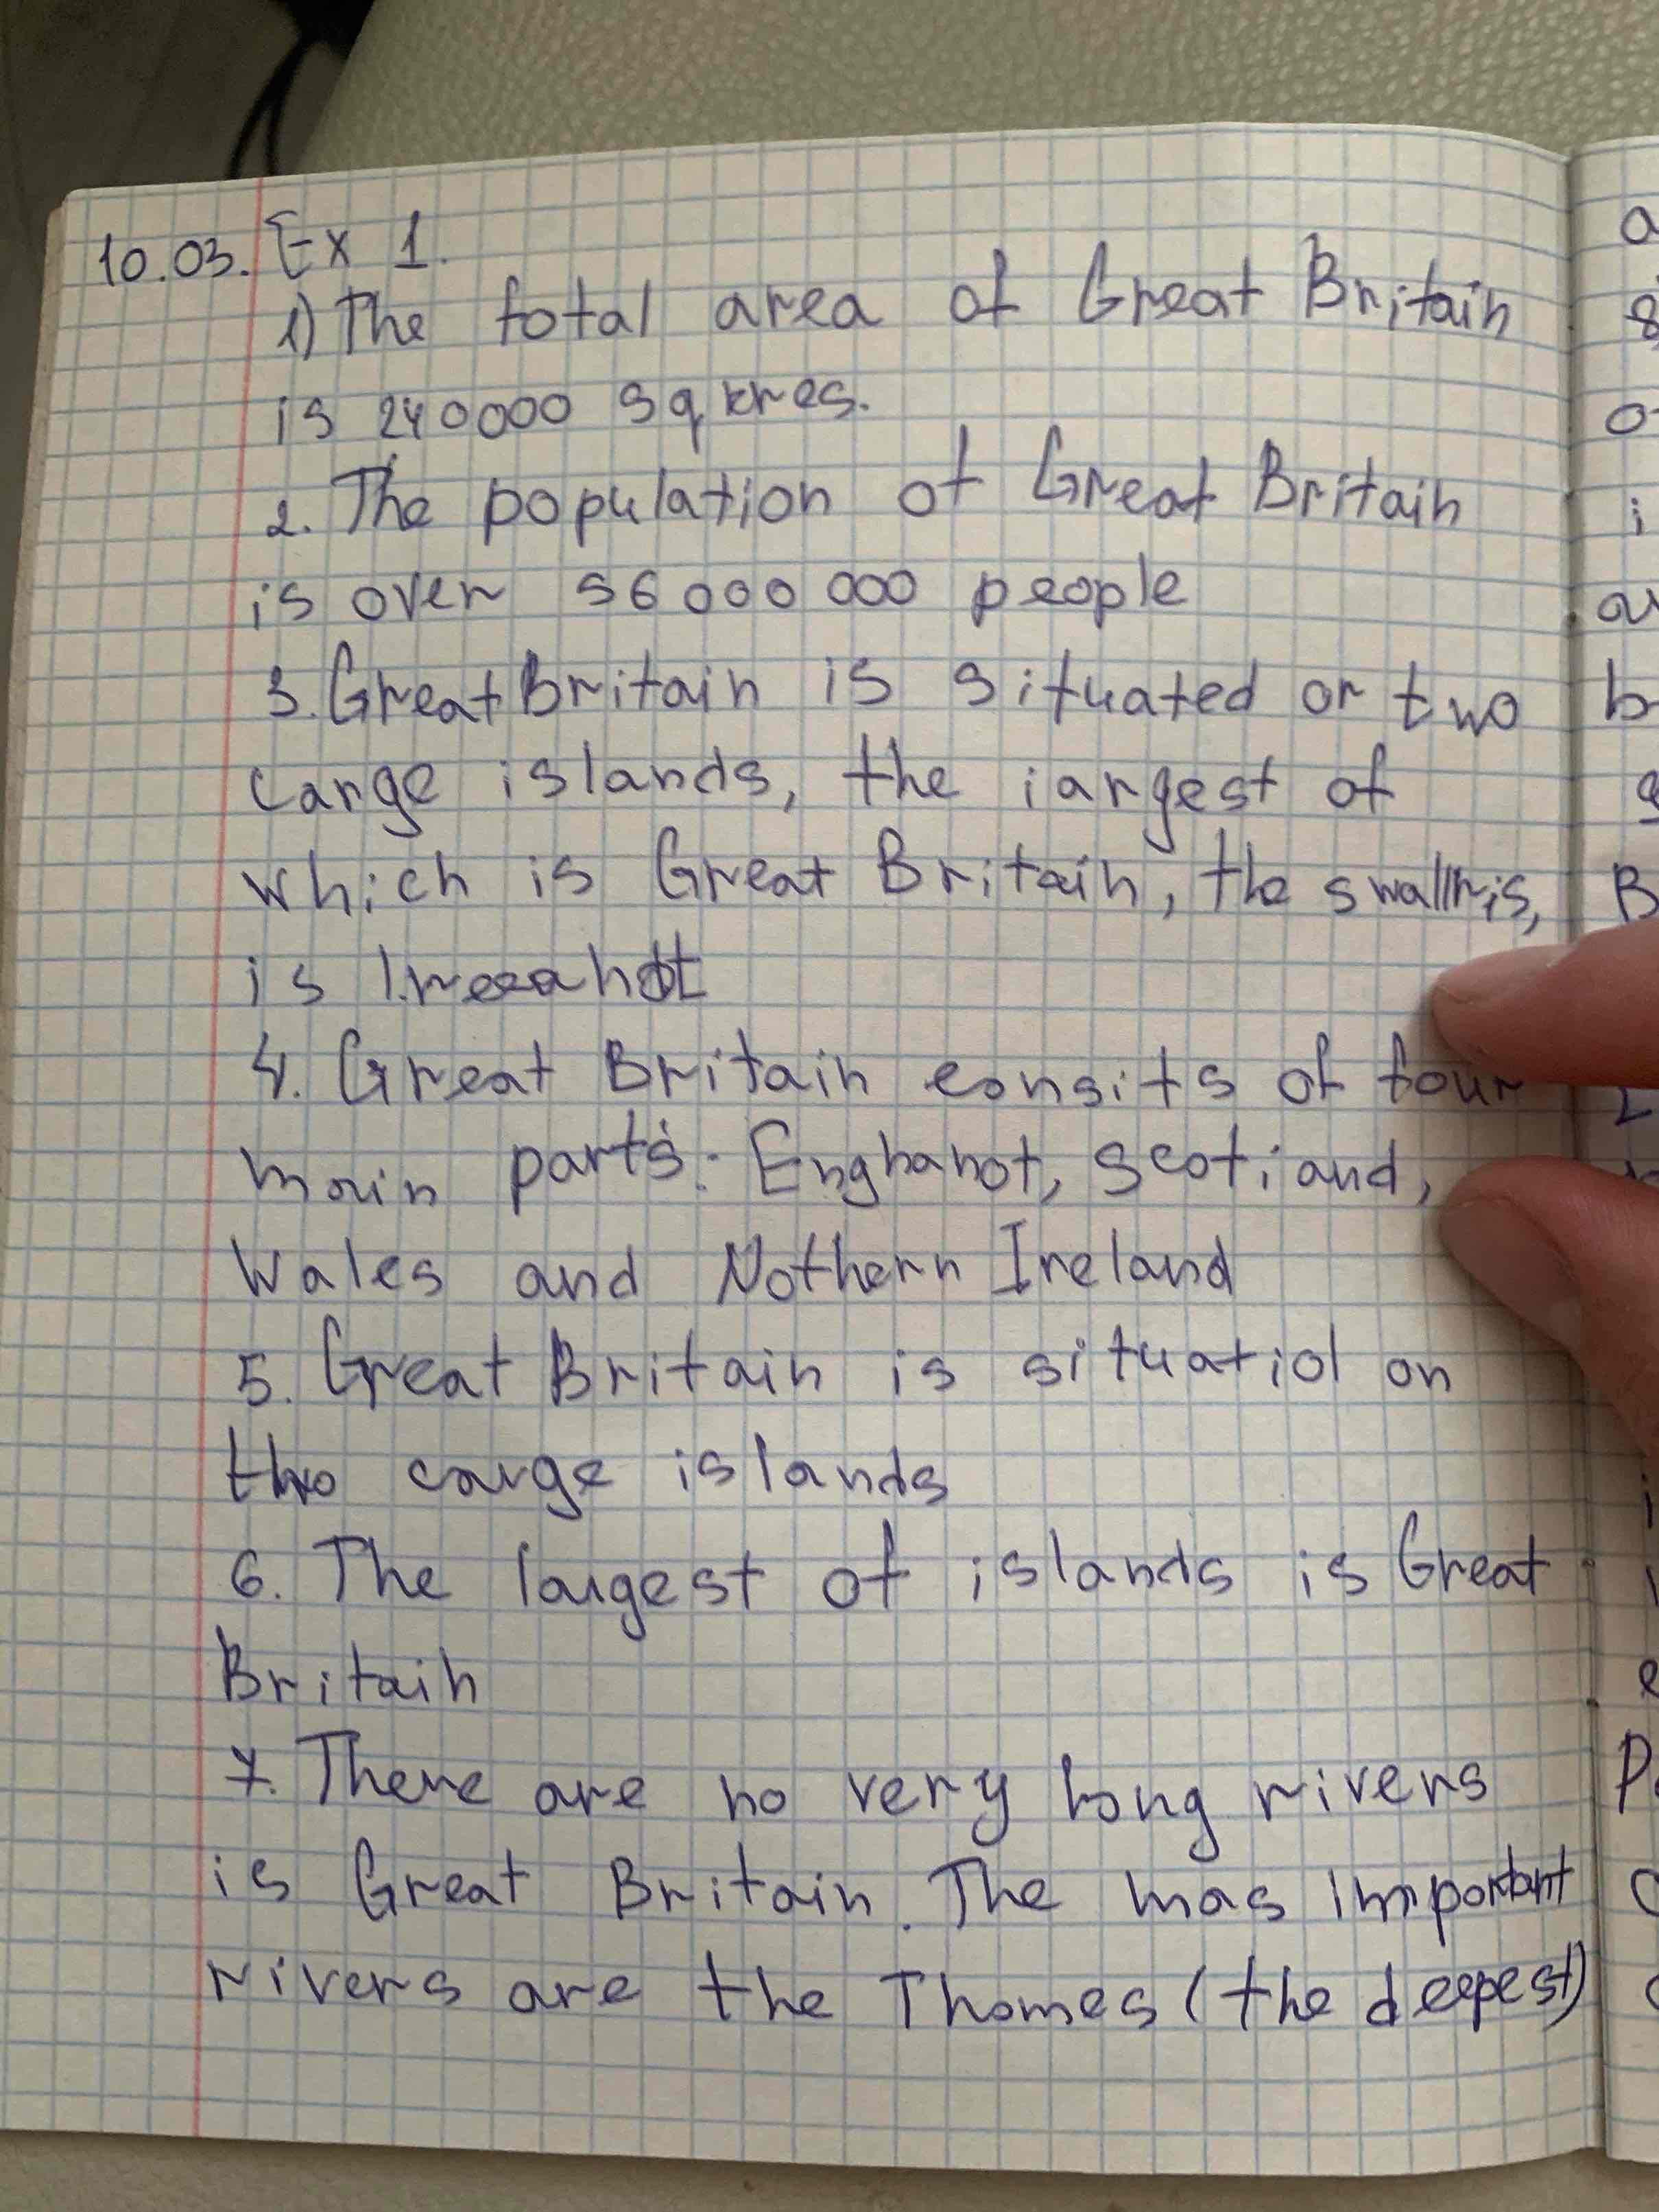 10.03. Ex 1.
1) The total area of Great Britain
is 240000 sq kres.
2. The population of Great Britain
is over 56 000 000 people
3. Great Britain is situated or two
carge islands, the iargest of
which is Great Britain, the swallris,
is
4. Great Britain consits of four
main parts: Enghanot, Scotiand,
Wales and Nothern Ireland
5. Great Britain is situatiol on
two carge islands
6. The largest of islands is Great
Britain
7. There are no very long rivers
is Great Britain. The mas important
rivers are the Thomes (the deepest)